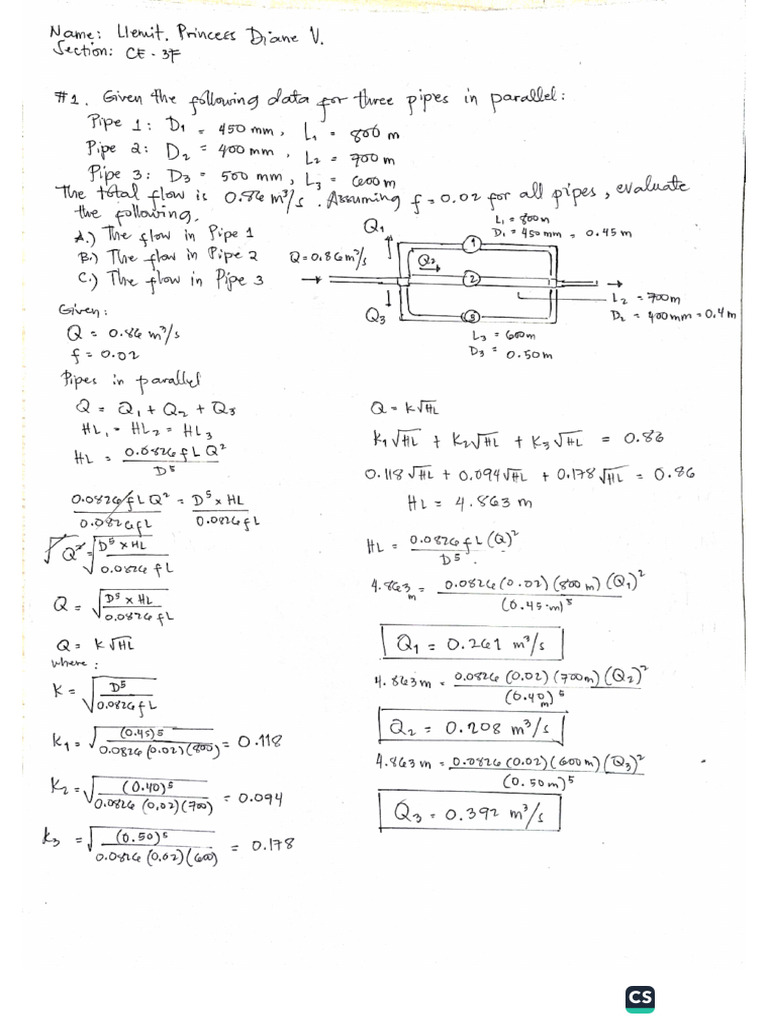 Name: Llemit, Princess Diane V.
Section: CE - 3F
#1. Given the following data for three pipes in parallel:
Pipe 1: D1 = 450 mm, L1 = 800 m
Pipe 2: D2 = 400 mm, L2 = 700 m
Pipe 3: D3 = 500 mm, L3 = 600 m
The total flow is 0.86 m³/s. Assuming f = 0.02 for all pipes, evaluate
the following.
A.) The flow in Pipe 1
B.) The flow in Pipe 2
C.) The flow in Pipe 3
Q1
L1 = 800m
D1 = 450mm = 0.45 m
Q = 0.86 m³/s
Q2
1
2
3
Q3
L2 = 700m
D2 = 400mm = 0.4 m
L3 = 600m
D3 = 0.50m
Given:
Q = 0.86 m³/s
f = 0.02
Pipes in parallel
Q = Q1 + Q2 + Q3
HL1 = HL2 = HL3
HL = 0.0826 f L Q² / D⁵
0.0826 f L Q² / 0.0826 f L = D⁵ x HL / 0.0826 f L
√Q² = √(D⁵ x HL / 0.0826 f L)
Q = √(D⁵ x HL / 0.0826 f L)
Q = K√HL
where:
K = √(D⁵ / 0.0826 f L)
K1 = √((0.45)⁵ / 0.0826 (0.02)(800)) = 0.118
K2 = √((0.40)⁵ / 0.0826 (0.02)(700)) = 0.094
K3 = √((0.50)⁵ / 0.0826 (0.02)(600)) = 0.178
Q = K√HL
K1√HL + K2√HL + K3√HL = 0.86
0.118√HL + 0.094√HL + 0.178√HL = 0.86
HL = 4.863 m
HL = 0.0826 f L (Q)² / D⁵
4.863 m = 0.0826 (0.02)(800 m)(Q1)² / (0.45 m)⁵
Q1 = 0.261 m³/s
4.863 m = 0.0826 (0.02)(700m)(Q2)² / (0.40 m)⁵
Q2 = 0.208 m³/s
4.863 m = 0.0826 (0.02)(600 m)(Q3)² / (0.50 m)⁵
Q3 = 0.392 m³/s
CS